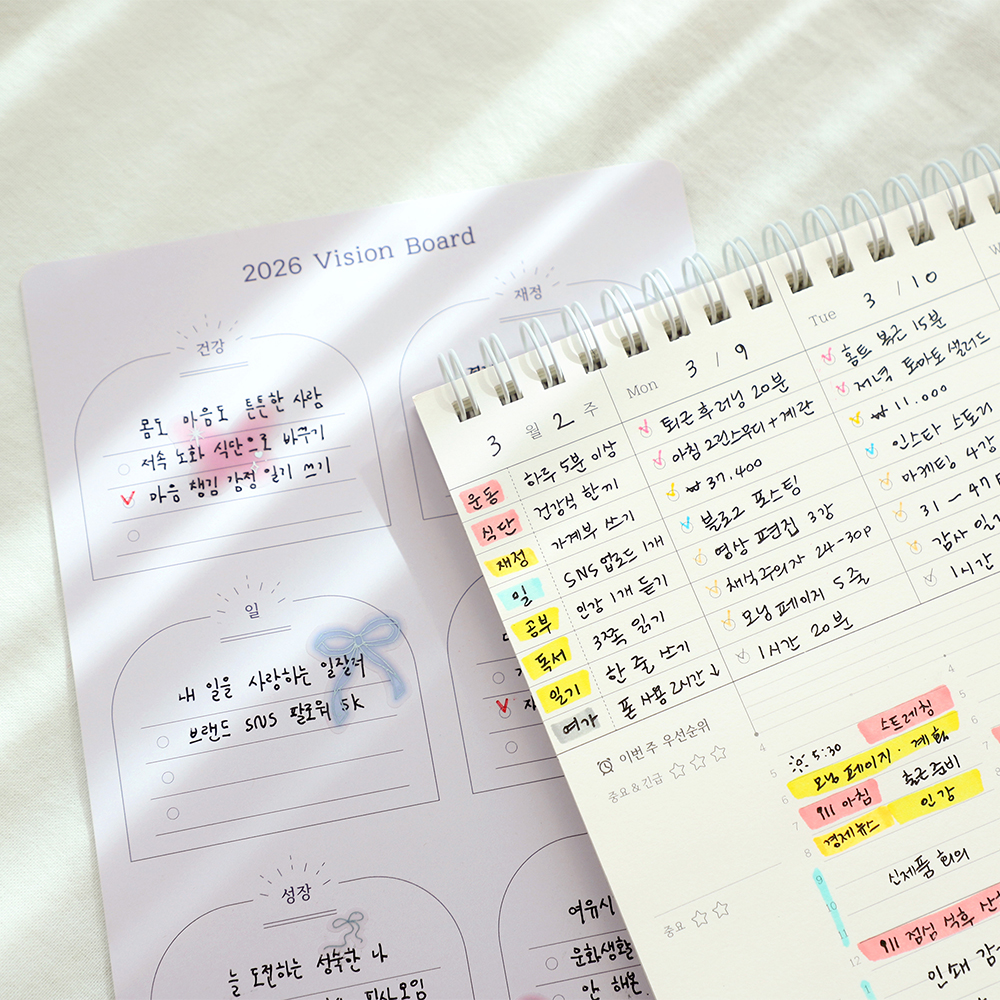 2026 Vision Board
건강
몸도 마음도 튼튼한 사람
저속 노화 식단으로 바꾸기
마음 챙김 감정 일기 쓰기
재정
일
내 일을 사랑하는 일잘러
브랜드 SNS 팔로워 5K
성장
늘 도전하는 성숙한 나
필사모임
여유시
문화생활
안 해본
3 월 2 주
운동 하루 5분 이상
식단 건강식 한 끼
재정 가계부 쓰기
일 SNS 업로드 1개
공부 인강 1개 듣기
독서 3쪽 읽기
일기 한 줄 쓰기
여가 폰 사용 2시간↓
Mon 3 / 9
퇴근 후 러닝 20분
아침 그린스무디+계란
₩ 37.400
블로그 포스팅
영상 편집 3강
채식주의자 24-30p
모닝 페이지 5줄
1시간 20분
Tue 3 / 10
홈트 복근 15분
저녁 토마토 샐러드
₩ 11.000
인스타 스토리
마케팅 4강
31 - 47
감사 일
1시간
이번 주 우선순위
중요 & 긴급
중요
4
5 5:30 스트레칭
6 모닝 페이지 · 계획
7 911 아침 출근 준비
8 경제뉴스 인강
9
10 신제품 회의
11
12 911 점심 식후 산
1 인쇄 감
4
5
6
7
8